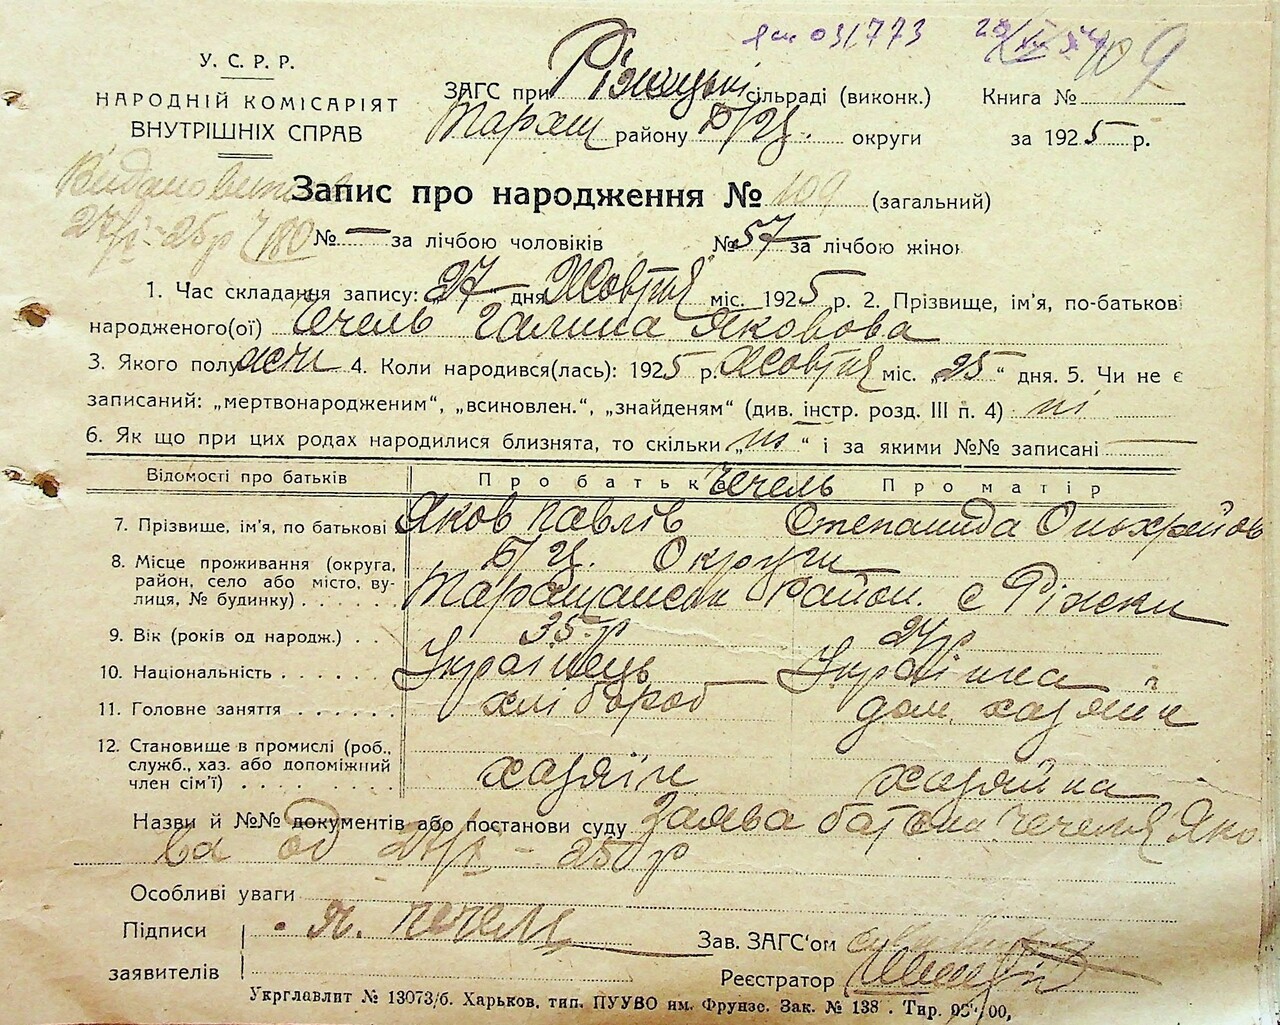 031773
У.С.Р.Р.
НАРОДНІЙ КОМІСАРІЯТ
ВНУТРІШНІХ СПРАВ
ЗАГС при Ріжецькі сільраді (виконк.)
Книга №
Таращ району Б/Ц. округи за 1925 р.
Запис про народження № 109 (загальний)
Видано
27/X-25р
№ — за лічбою чоловіків № 57 за лічбою жінок
1. Час складання запису: „27" дня Жовтня міс. 1925 р. 2. Прізвище, ім'я, по-батькові
народженого(ої) Чечель Галина Яковова
3. Якого полу жін 4. Коли народився(лась): 1925 р. Жовтня міс. „25" дня. 5. Чи не є
записаний: „мертвонародженим", „всиновлен.", „знайденям" (див. інстр. розд. III п. 4) ні
6. Як що при цих родах народилися близнята, то скільки „ні" і за якими №№ записані —
Відомості про батьків Про батька Чечель Про матір
7. Прізвище, ім'я, по батькові Яков Павлів Степанида
8. Місце проживання (округа, Б/Ц. Округи
район, село або місто, ву- Таращанськ Район. с Ріжки
лиця, № будинку)
9. Вік (років од народж.) 35 р 27 р
10. Національність Українець Українка
11. Головне заняття хлібороб дом. хазяйк
12. Становище в промислі (роб.,
служб., хаз. або допоміжний
член сім'ї) хазяїн хазяйка
Назви й №№ документів або постанови суду Заява батька Чечеля Яко
ва од 27/X-25 р
Особливі уваги
Підписи
заявителів
Я. Чечель
Зав. ЗАГС'ом
Реєстратор
Укрглавліт № 13073/б. Харьков, тип. ПУУВО им. Фрунзе. Зак. № 138. Тир.